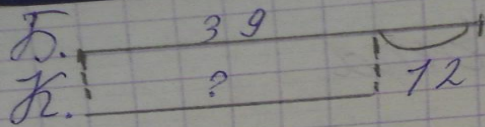 Б. 39
К. ? 12